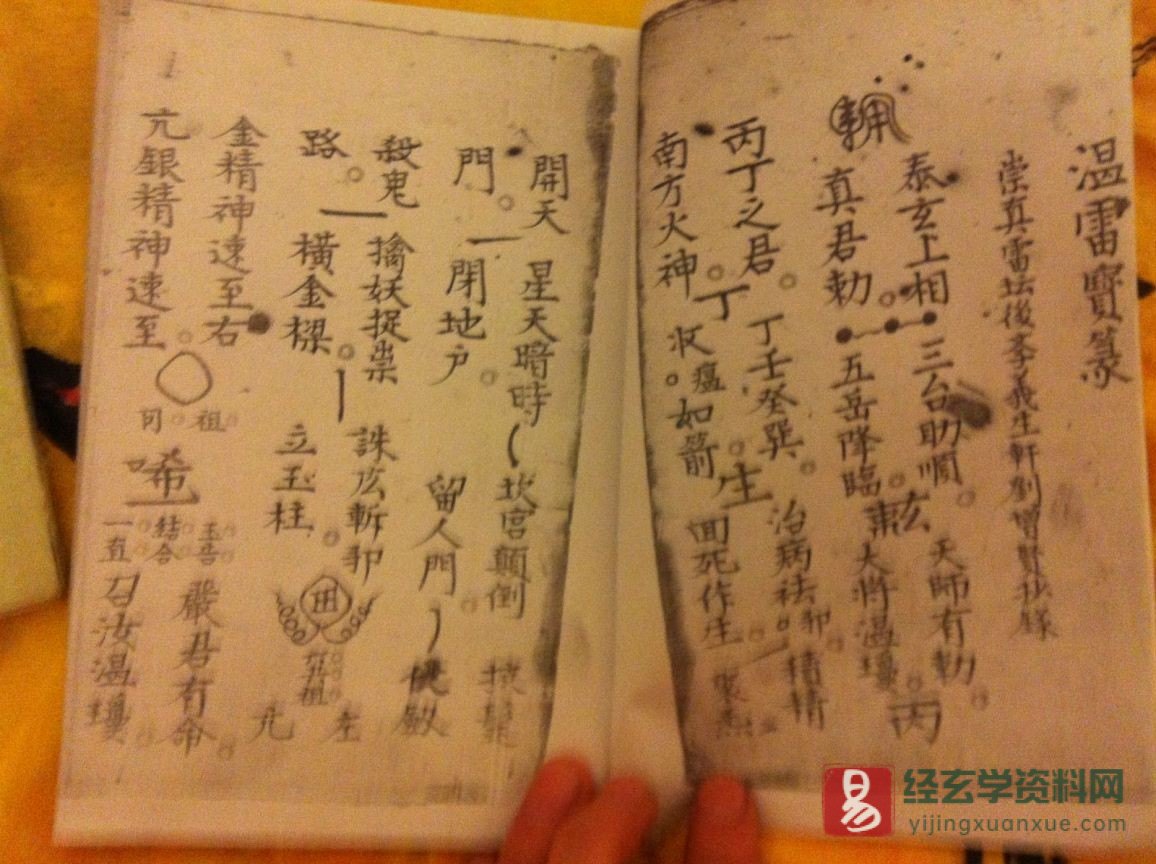 温雷寳篆
崇真雷坛後孝義生軒劉增賢抄録
泰玄上相
真君勅
三台助順
五岳降臨
天師有勅
大將温瓊
丙
丙丁之君
南方火神
丁
丁壬癸巽
收瘟如箭
生
治病祛邪
回死作生
精精
開天
門
星天暗時
閉地户
坎宫顛倒
留人門
殺鬼
路
擒妖捉祟
横金樑
誅瘟斬邪
立玉柱
左
亢
金精神速至右
亢銀精神速至
祖
司
唏
結合
一直
嚴君有命
召汝温瓊
易
经玄学资料网
yijingxuanxue.com